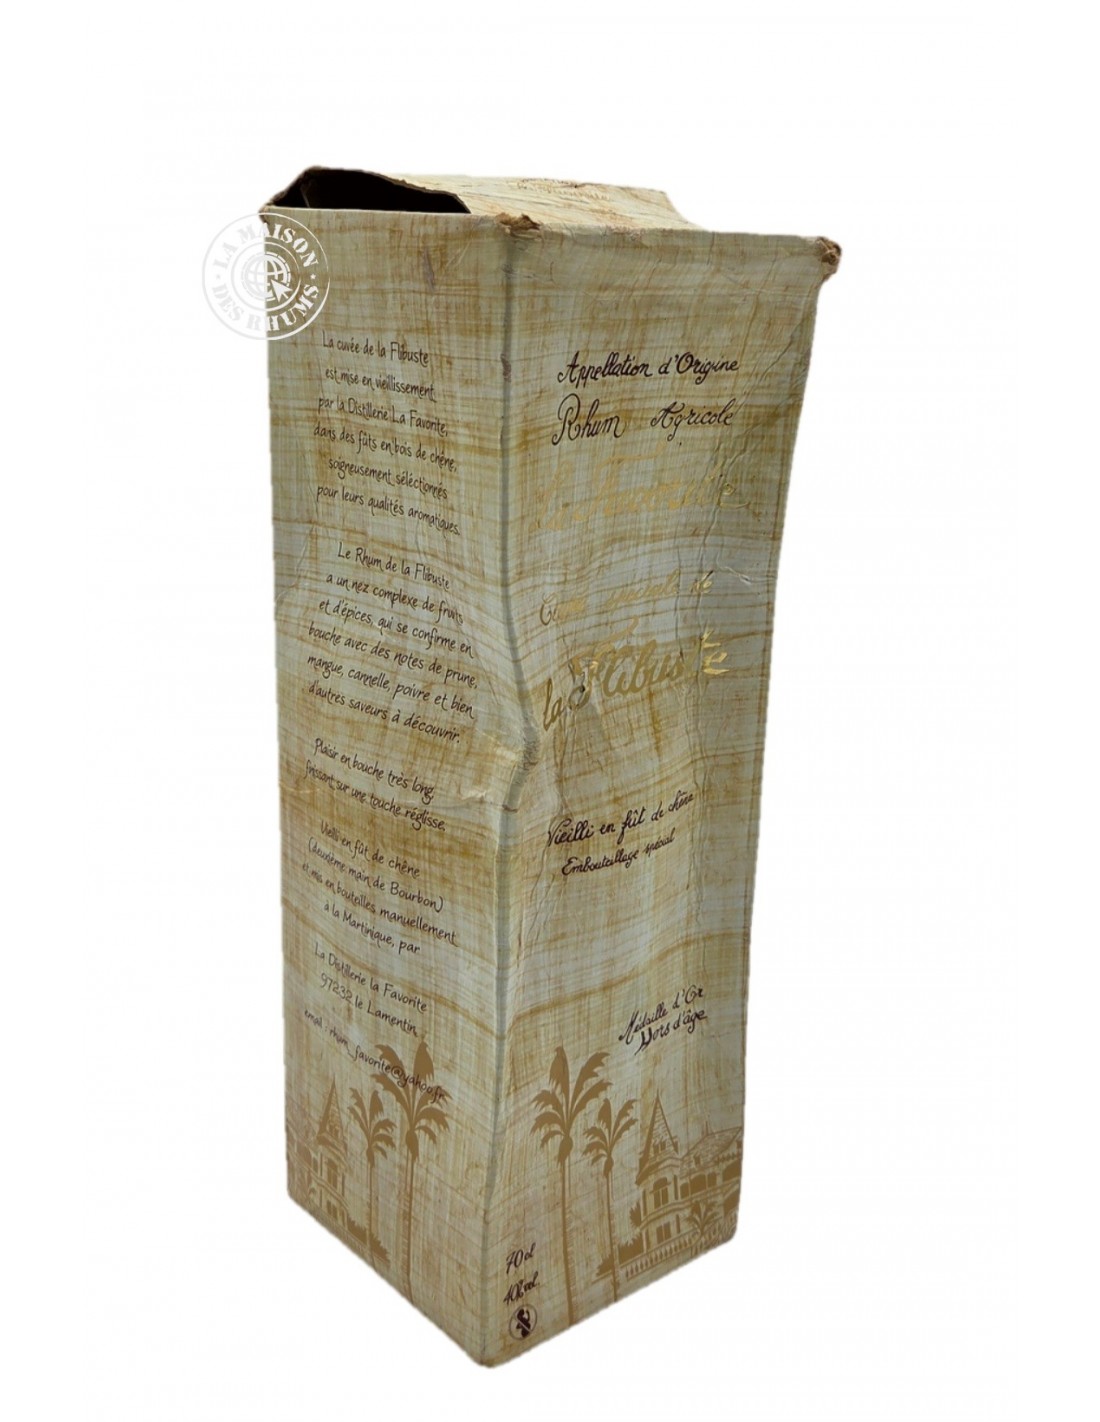 LA MAISON
DES RHUMS
La cuvée de la Flibuste
est mise en vieillissement
par la Distillerie La Favorite,
dans des fûts en bois de chêne,
soigneusement séléctionnés
pour leurs qualités aromatiques.
Le Rhum de la Flibuste
a un nez complexe de fruits
et d'épices, qui se confirme en
bouche avec des notes de prune,
mangue, cannelle, poivre et bien
d'autres saveurs à découvrir.
Plaisir en bouche très long,
finissant sur une touche réglisse.
Vieilli en fût de chêne
(deuxième main de Bourbon)
et mis en bouteilles manuellement
à la Martinique, par
La Distillerie la Favorite
97232 le Lamentin
email : rhum_favorite@yahoo.fr
Appellation d'Origine
Rhum Agricole
La Favorite
Cuvée spéciale de
la Flibuste
Vieilli en fût de chêne
Embouteillage spécial
Médaille d'Or
Hors d'âge
70 cl
40% vol.